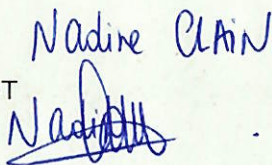 Nadine CLAIN
T